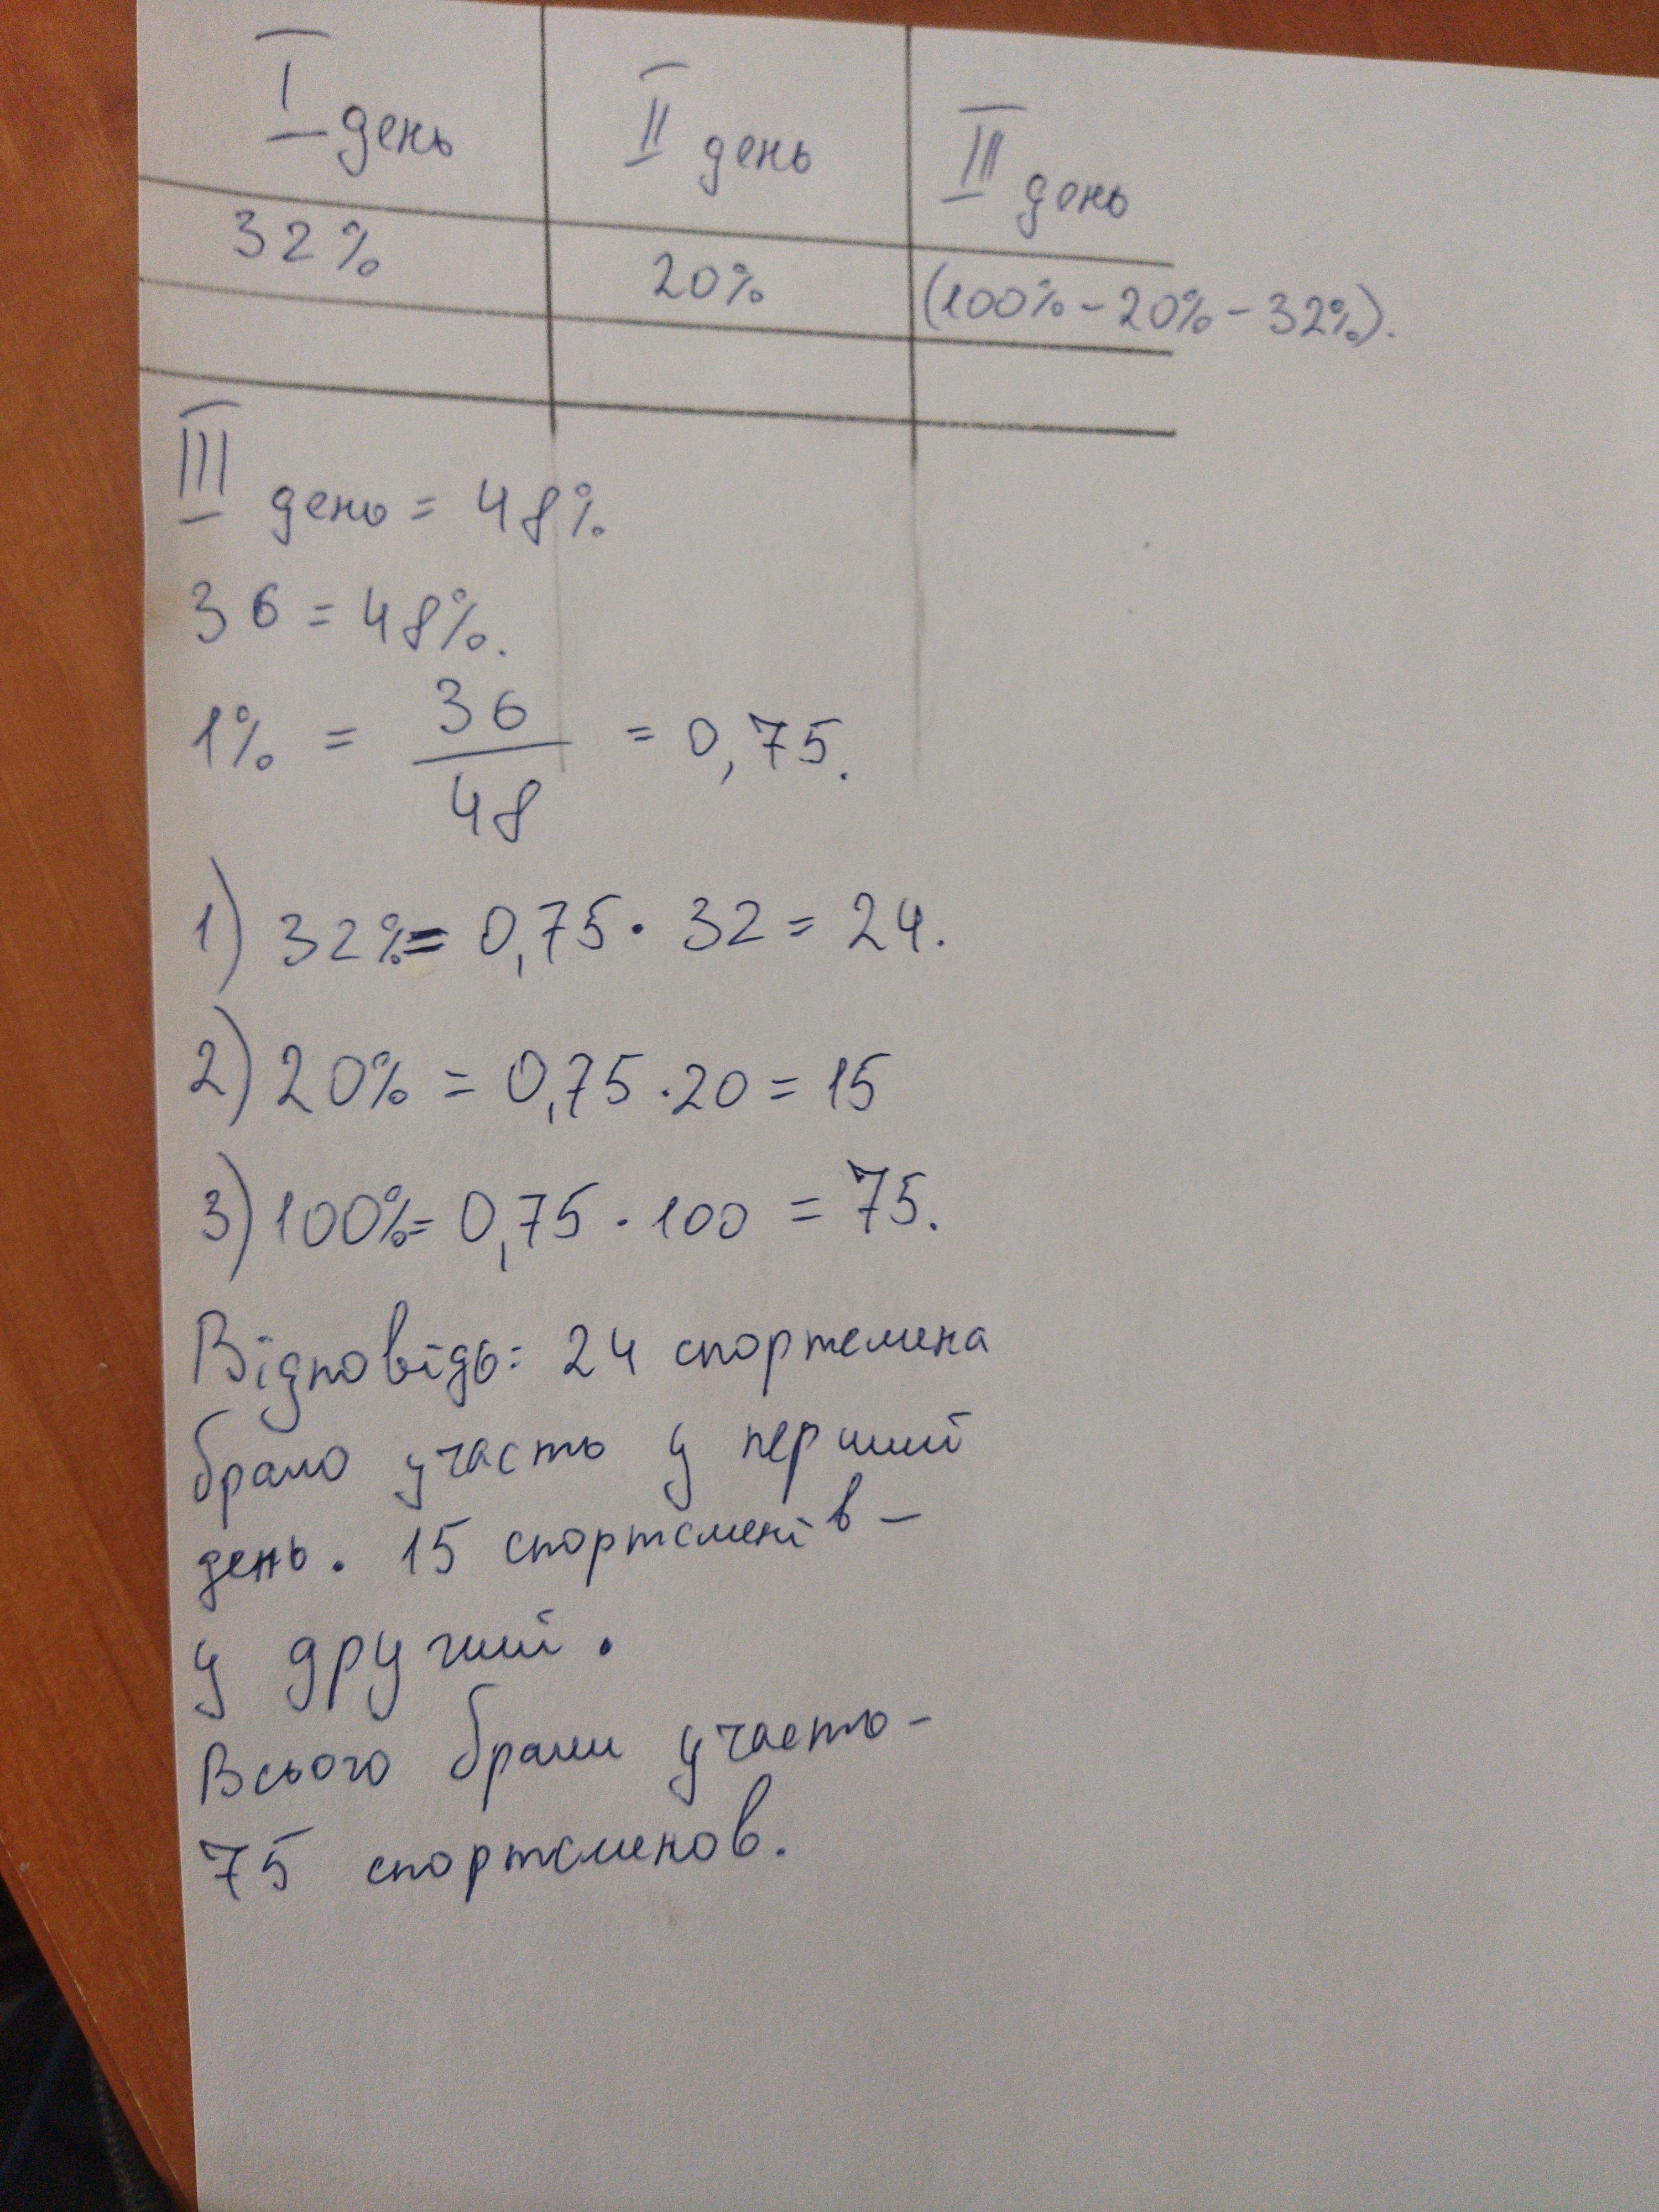 I день
II день
III день
32%
20%
(100% - 20% - 32%).
III день = 48%
36 = 48%.
1% = 36/48 = 0,75.
1) 32% = 0,75 · 32 = 24.
2) 20% = 0,75 · 20 = 15
3) 100% = 0,75 · 100 = 75.
Відповідь: 24 спортсмена
брало участь у перший
день. 15 спортсменів -
у другий.
Всього брали участь -
75 спортсменов.